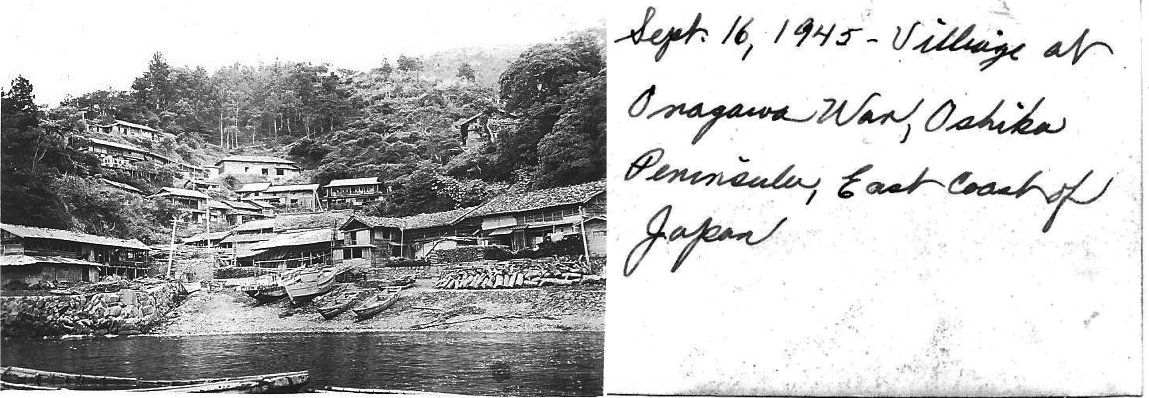 Sept. 16, 1945 - Village at
Onagawa Wan, Oshika
Peninsula, East Coast of
Japan